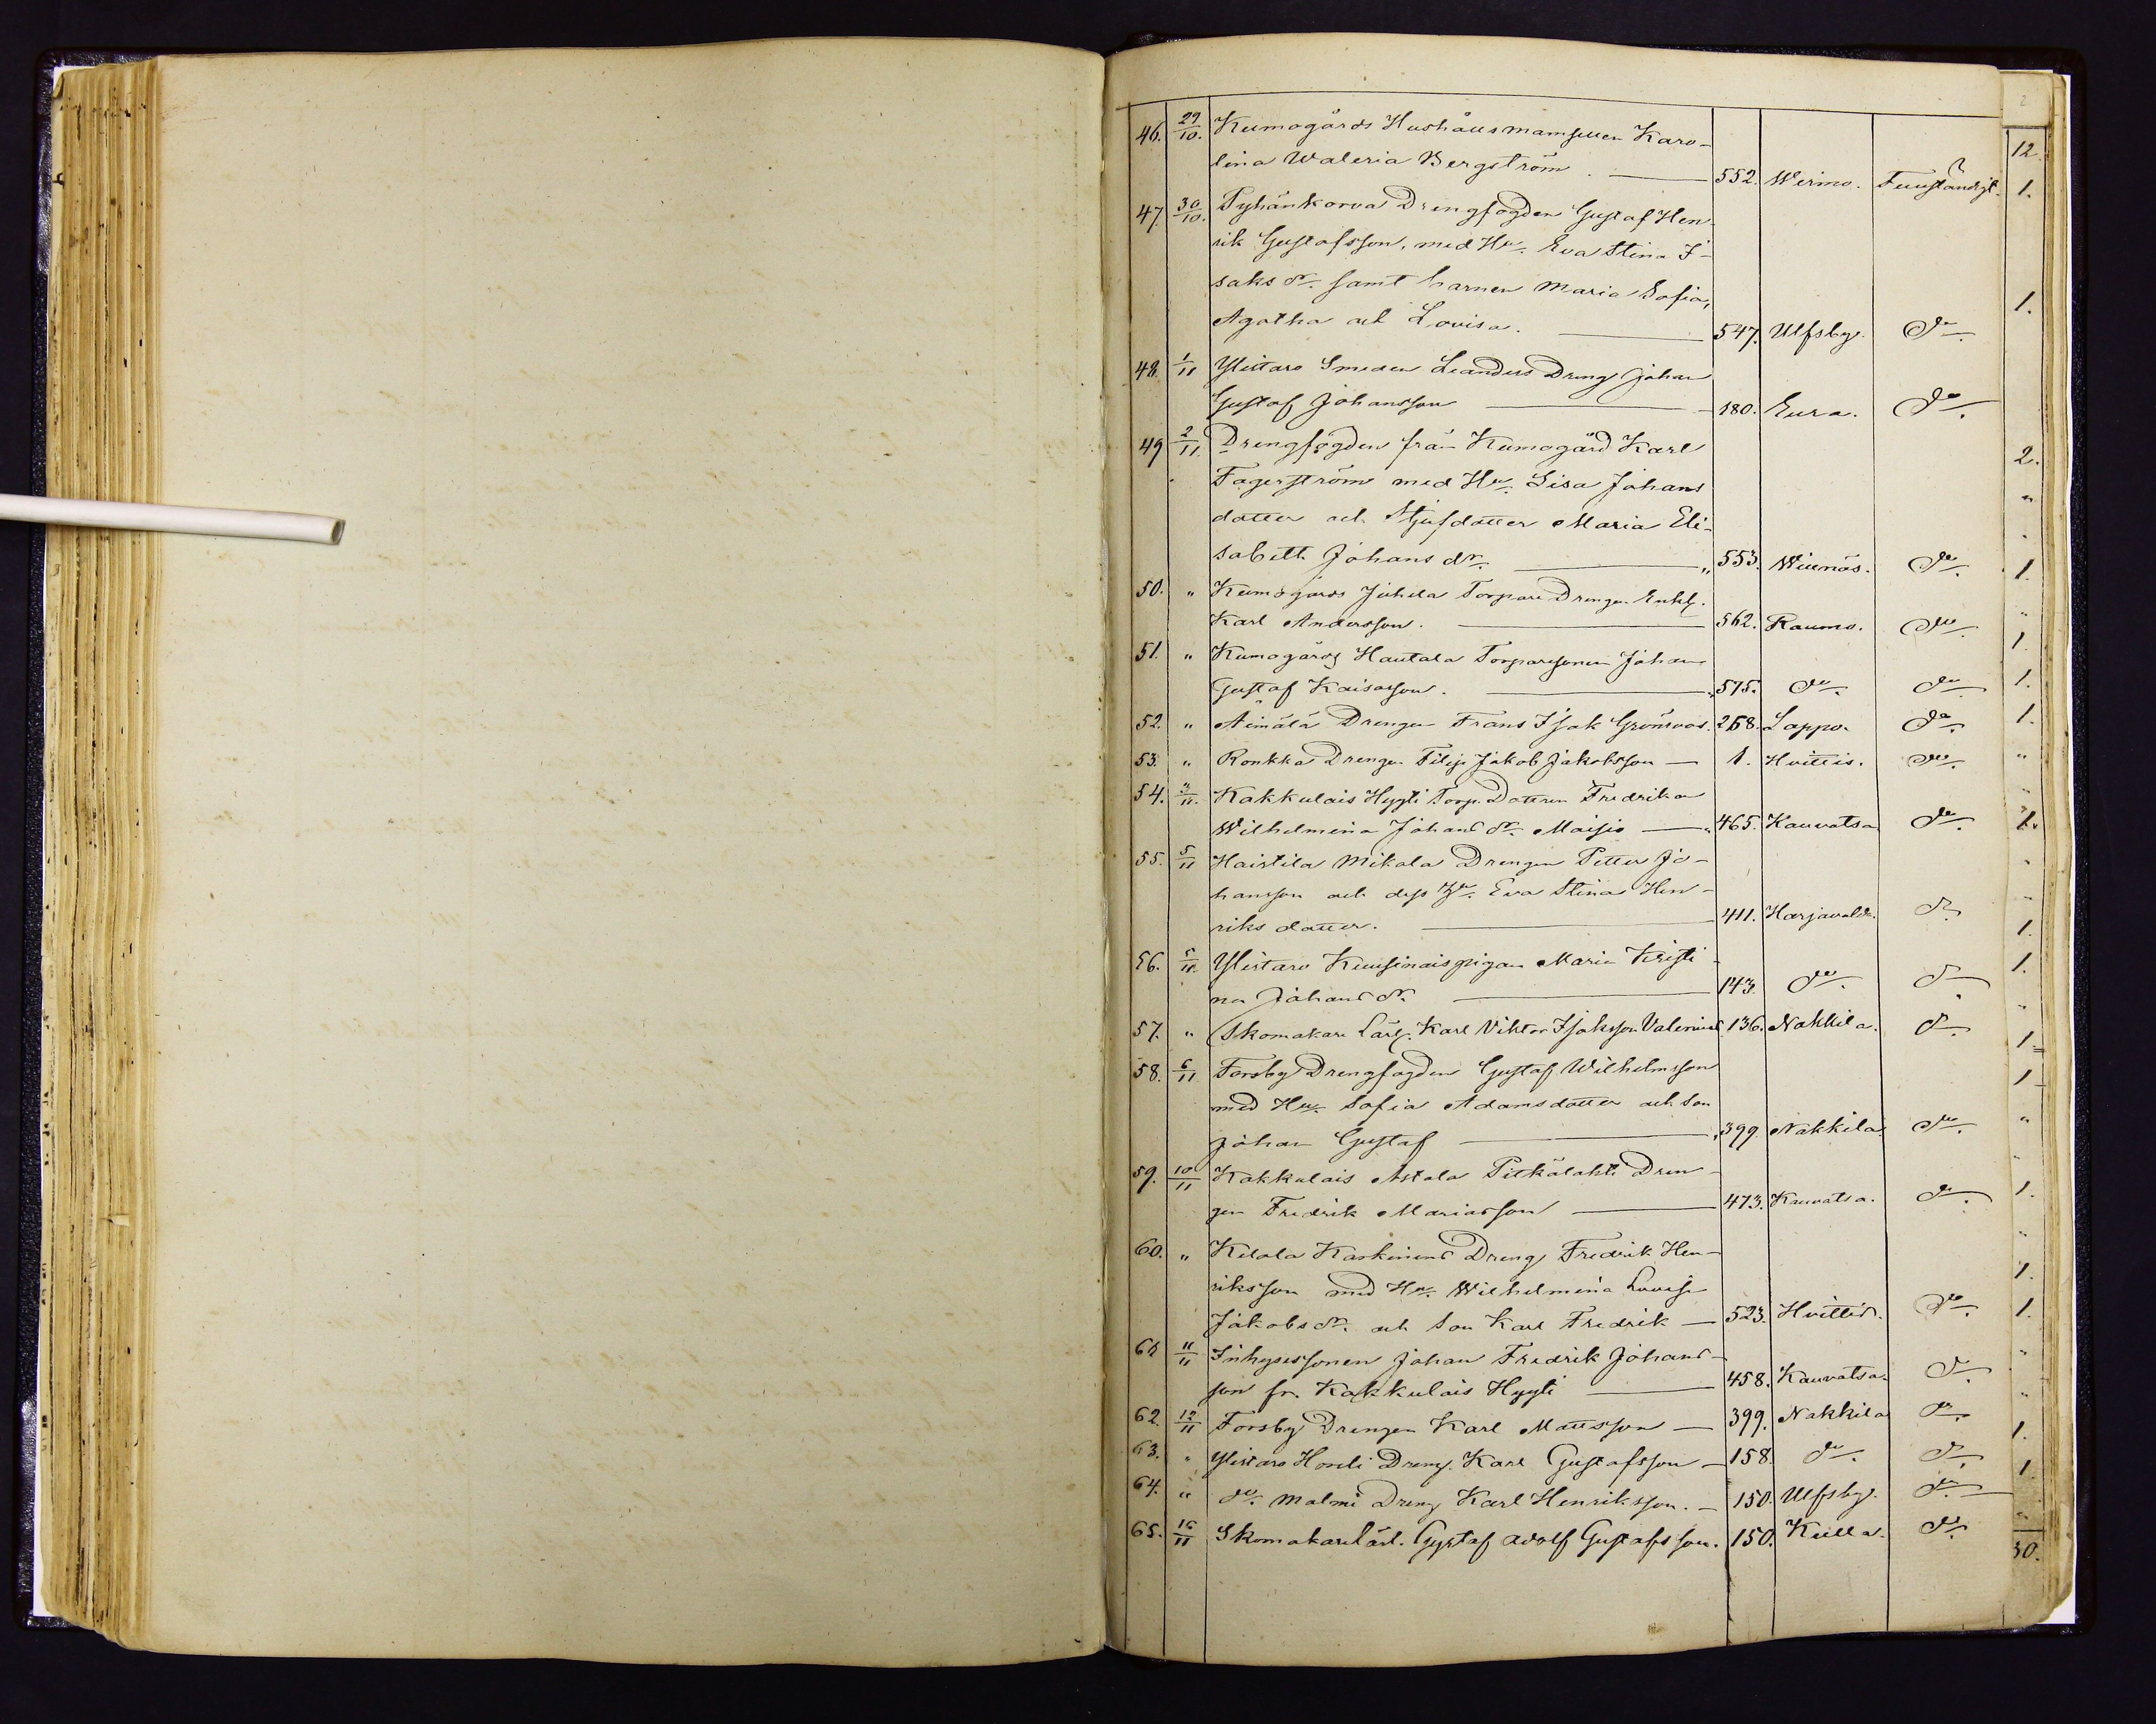 46. 29/10. Kumogårds Hushållsmamsellen Karo-
lina Waleria Bergström. — 552. Wirmo. Fullständigt. 1.
47. 30/10. Pyhänkorva Drengfogden Gustaf Hen-
rik Gustafsson, med Hu. Eva Stina I-
saks dr. samt barnen Maria Sofia,
Agatha och Lovisa. — 547. Ulfsby. do.
48. 1/11 Ylistaro Smeden Leanders Dreng Johan
Gustaf Johansson — 180. Eura. do.
49 2/11. Drengfogden från Kumogård Karl
Fagerström med Hu. Lisa Johans
dotter och Stjufdotter Maria Eli-
sabeth Johans dr. — „ 553. Wiinäs. do.
50. „ Kumogårds Juhela Torpare Drengen Enkl.
Karl Andersson. — 562. Raumo. do.
51. „ Kumogårds Hautala Torparesonen Johan
Gustaf Kaisasson. — „ 575. do. do.
52. „ Äimälä Drengen Frans Isak Grönroos. 268. Lappo. do.
53. „ Ronkka Drengen Filip Jakob Jakobsson — 1. Hvittis. do.
54. 3/11. Kakkulais Hygli Torp. Dottren Fredrika
Wilhelmina Johans dr. Maisio — „ 465. Kauvatsa do.
55. 5/11 Haistila Mikola Drengen Petter Jo-
hansson och dess Hu. Eva Stina Hen-
riks dotter. — 411. Harjavalda. do.
56. 5/11. Ylistaro Kuusinaispigan Maria Kristi-
na Johans dr. — 143. do. do.
57. „ Skomakare Lärl. Karl Viktor Isaksson Valenius 136. Nakkila. do.
58. 6/11 Forsby Drengfogden Gustaf Wilhelmsson
med Hu. Sofia Adamsdotter och Son
Johan Gustaf — „ 399. Nakkila. do.
59. 10/11 Kakkulais Astala Pitkälahti Dren-
gen Fredrik Mariasson — 473. Kauvatsa. do.
60. „ Kelola Karhinens Dreng Fredrik Hen-
riksson med Hu. Wilhelmina Lovisa
Jakobs dr. och Son Karl Fredrik — 523. Hvittis. do.
61 11/11 Inhysessonen Johan Fredrik Johans-
son fr. Kakkulais Hygli — 458. Kauvatsa. do.
62. 12/11 Forsby Drengen Karl Mattsson — 399. Nakkila do.
63. „ Ylistaro Honli Dreng. Karl Gustafsson — 158. do. do.
64. „ do. Malmi Dreng Karl Henriksson. — 150. Ulfsby. do.
65. 16/11 Skomakarelärl. Gustaf Adolf Gustafsson. 150. Kiulla. do.